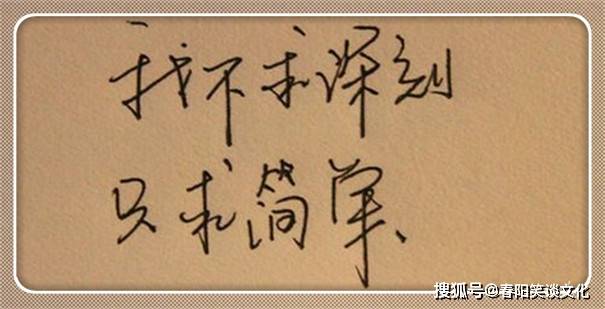 我不求深刻
只求简单、
搜狐号@春阳笑谈文化